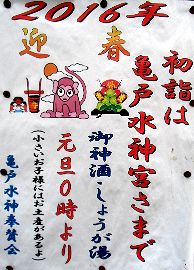 2016年
迎春
初詣は
亀戸水神宮さまで
御神酒・しょうが湯
元旦0時より
(小さいお子様にはお土産があるよ)
亀戸水神奉賛会